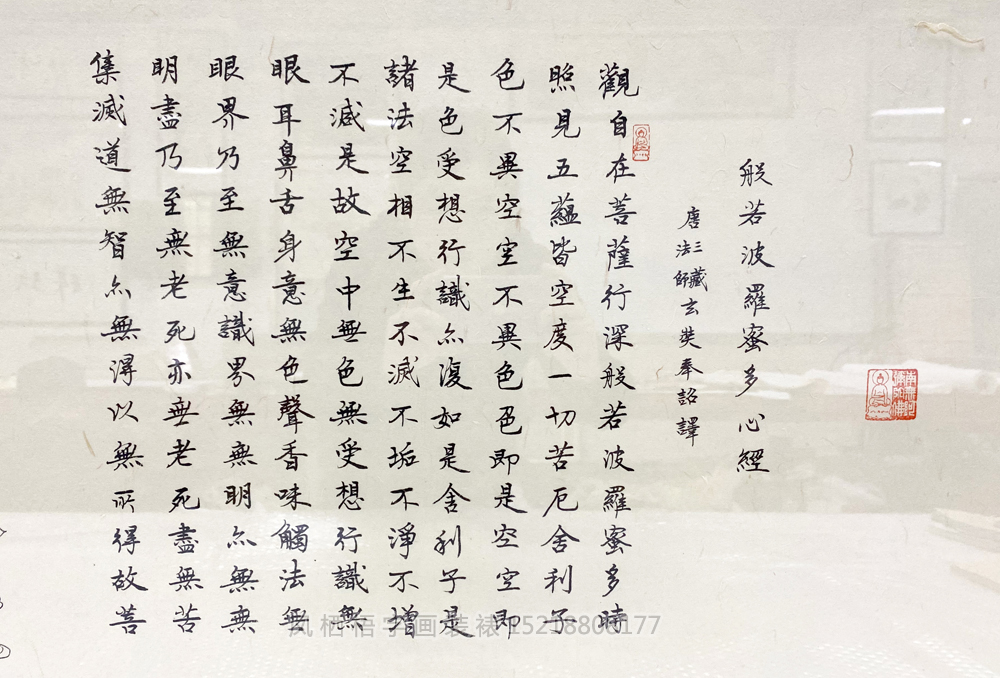 般若波羅蜜多心經
唐三藏法師玄奘奉詔譯
觀自在菩薩行深般若波羅蜜多時
照見五蘊皆空度一切苦厄舍利子
色不異空空不異色色即是空空即
是色受想行識亦復如是舍利子是
諸法空相不生不滅不垢不淨不增
不減是故空中無色無受想行識無
眼耳鼻舌身意無色聲香味觸法無
眼界乃至無意識界無無明亦無無
明盡乃至無老死亦無老死盡無苦
集滅道無智亦無得以無所得故菩
南無阿彌陀佛
凤栖梧字画装裱15218808177